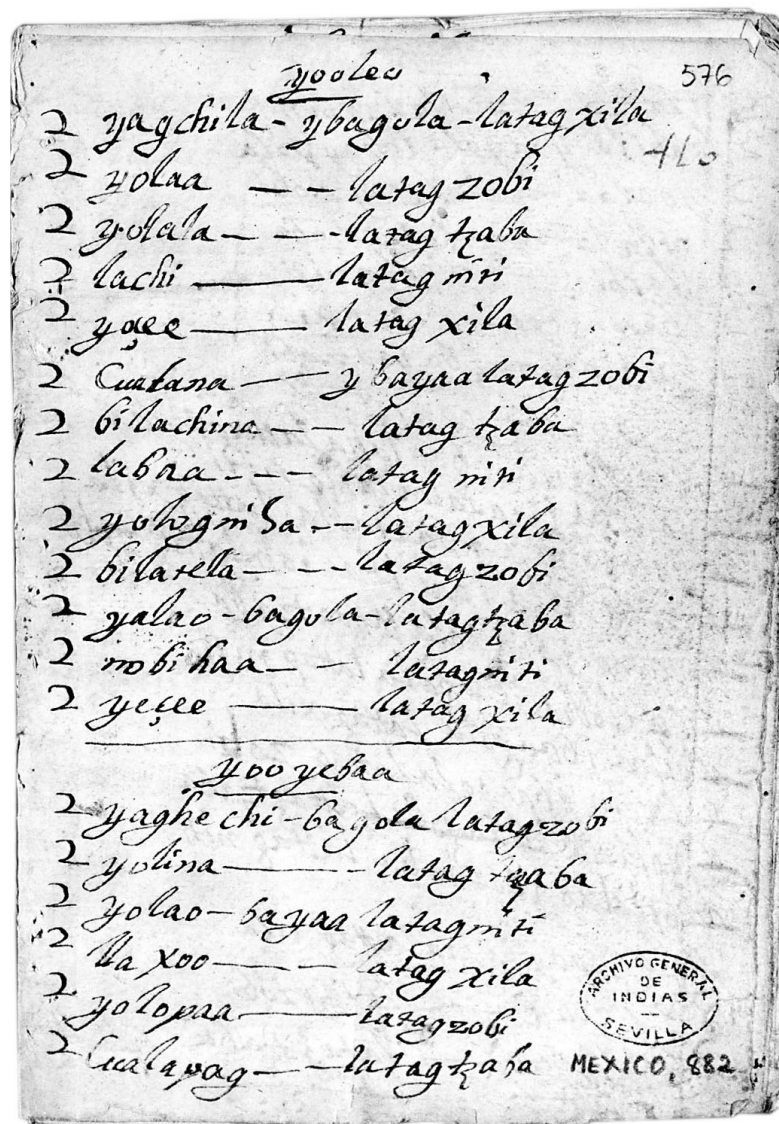 yooleo
576
2 yagchila - ybagola - latag xila
2 yolaa — — latag zobi
2 yolala — — latag tzaba
2 lachi — latag niti
2 yoçee — latag xila
2 Cualana — y bayaa latag zobi
2 bilachina — — latag tzaba
2 labaa - - - latag niti
2 yologniça - - latag xila
2 bilatela - - - latag zobi
2 yalao - bagola - latag tzaba
2 nobihaa — — latag niti
2 yeçee — latag xila
yoo yebaa
2 yaghechi - bagola latag zobi
2 yolina — latag tzaba
2 yolao - bayaa latag niti
2 lla xoo — latag xila
2 yolopaa — latag zobi
2 Cualapag — latag tzaba
ARCHIVO GENERAL
DE
INDIAS
SEVILLA
MEXICO, 882